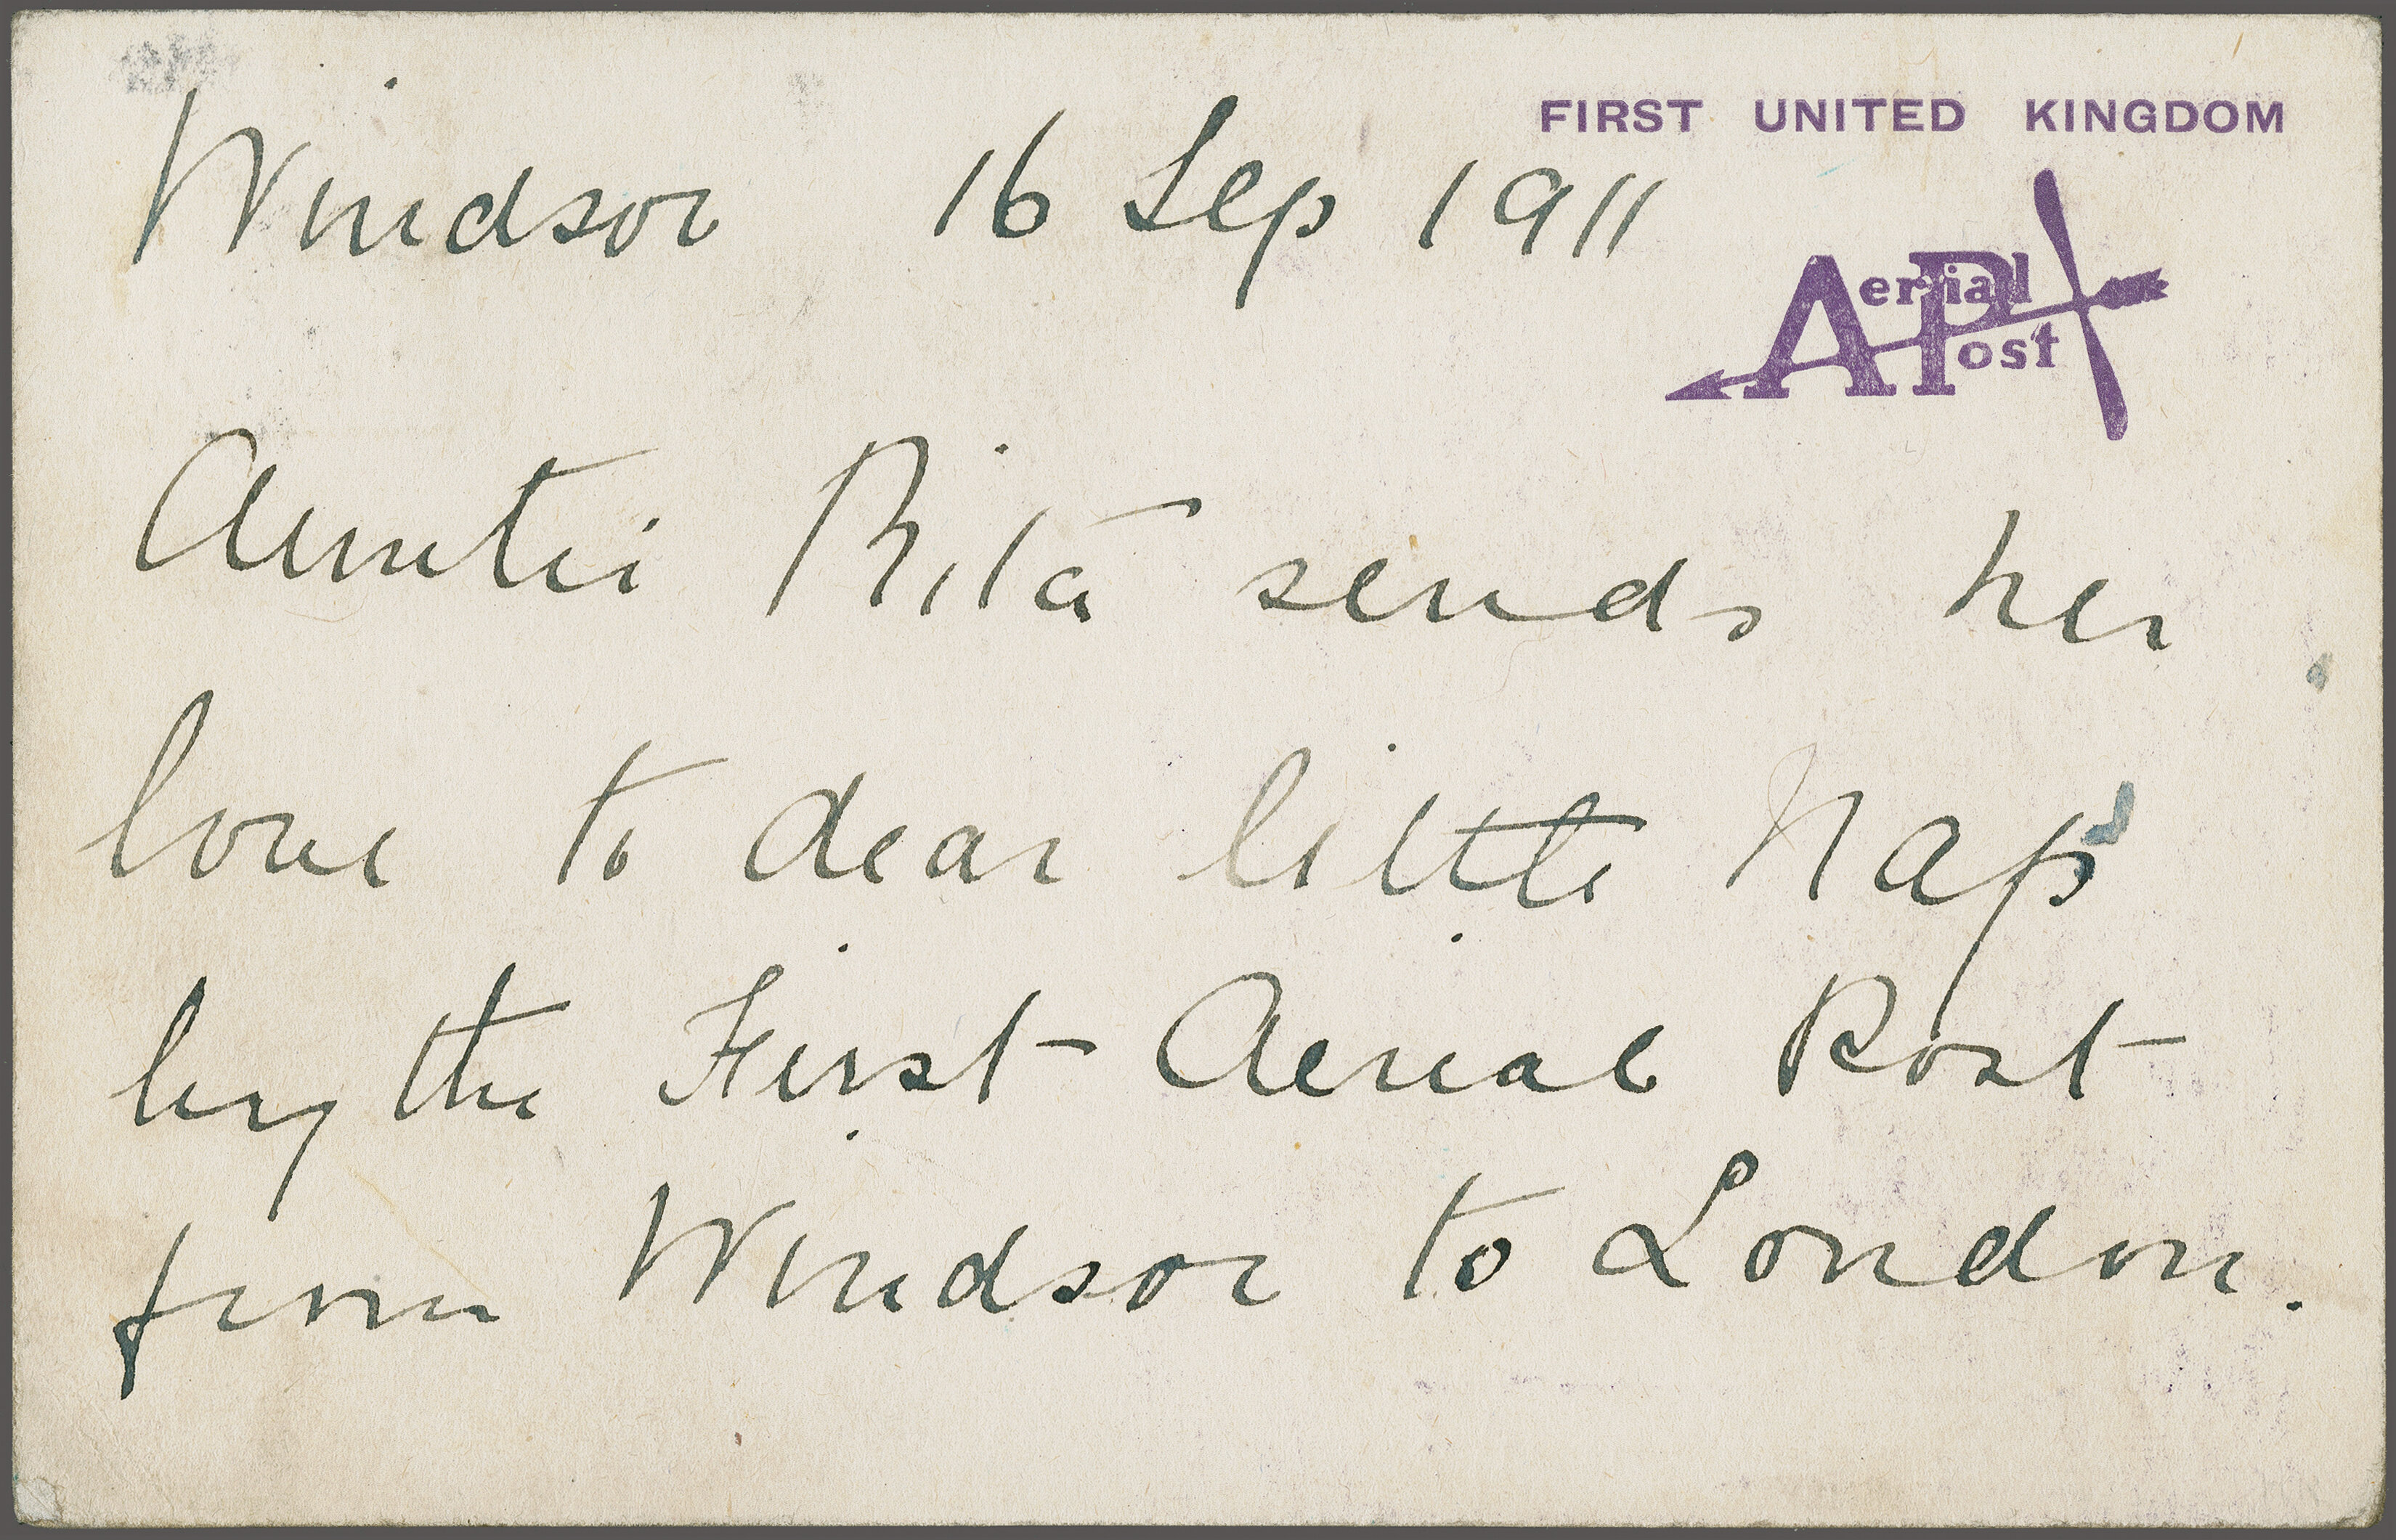 FIRST UNITED KINGDOM
Windsor 16 Sep 1911
Aerial
Post
Auntie Rita sends her
love to dear little Naps
by the First Aerial Post
from Windsor to London.